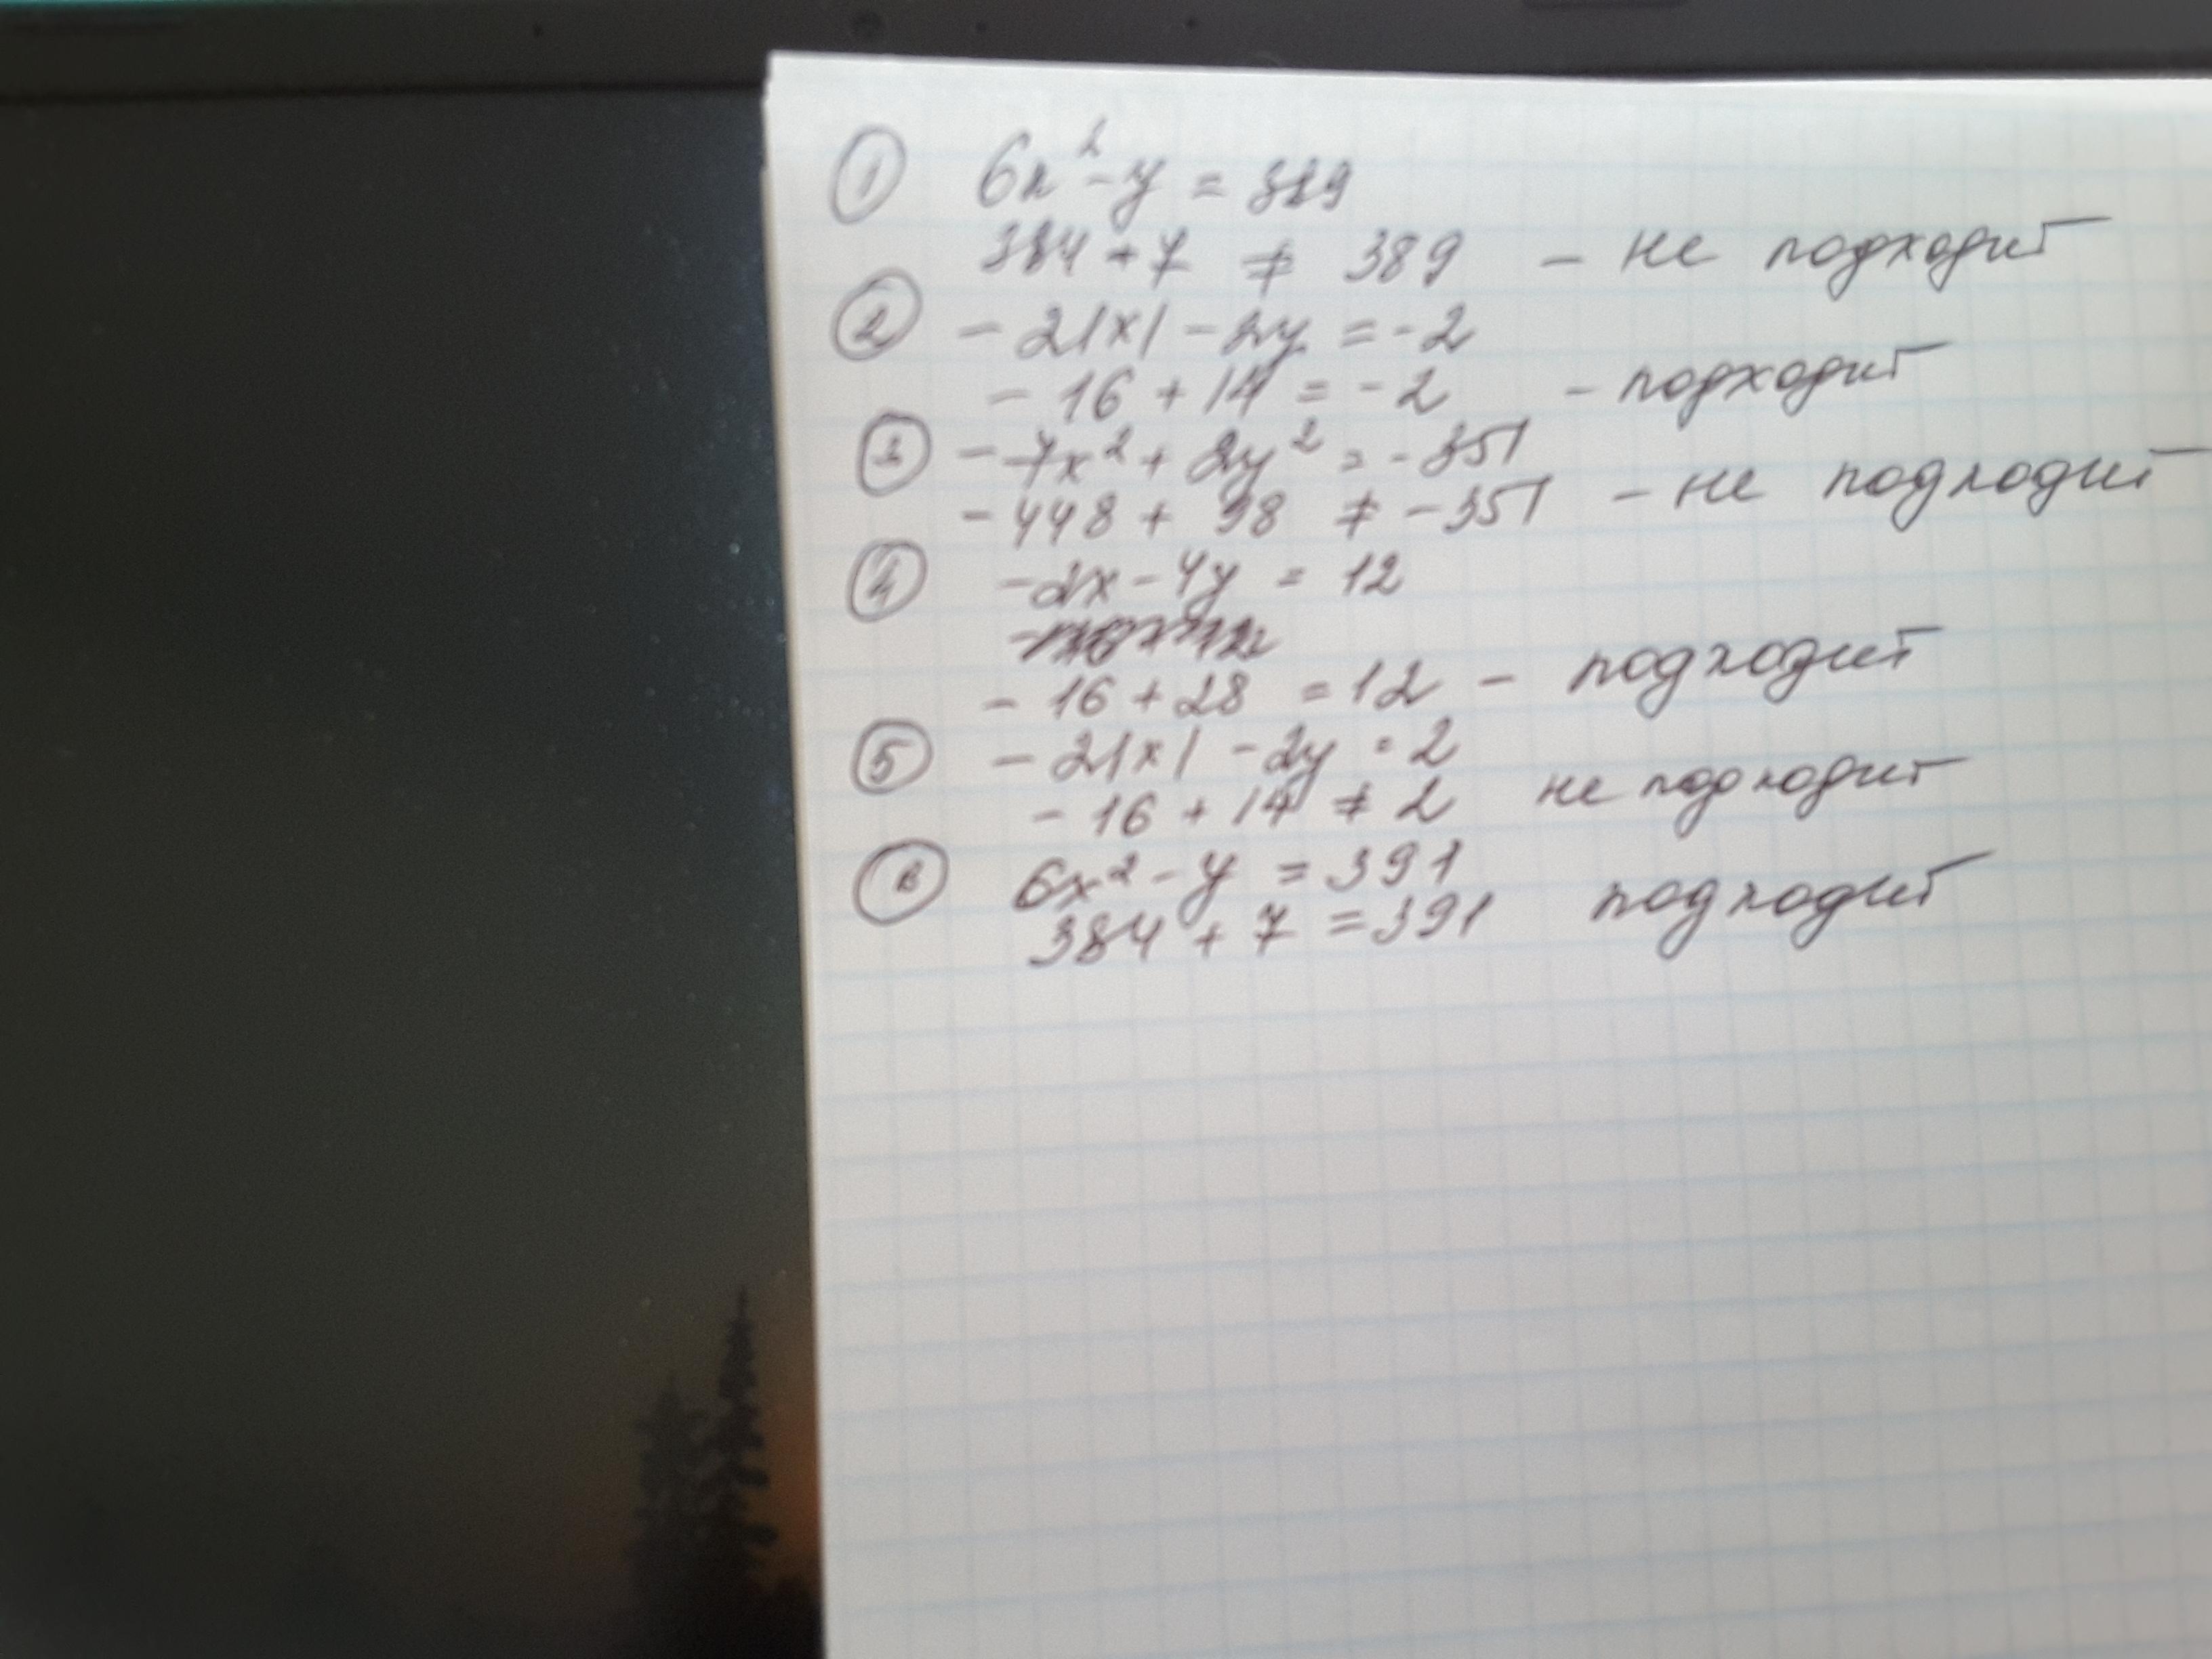 ① 6x² - y = 389
384 + 7 ≠ 389 - не подходит
② - 2|x| - 2y = -2
- 16 + 14 = -2 - подходит
③ - 7x² + 2y² = -351
- 448 + 98 ≠ -351 - не подходит
④ -2x - 4y = 12
- 16 + 28 = 12 - подходит
⑤ - 2|x| - 2y = 2
- 16 + 14 ≠ 2 не подходит
⑥ 6x² - y = 391
384 + 7 = 391 подходит